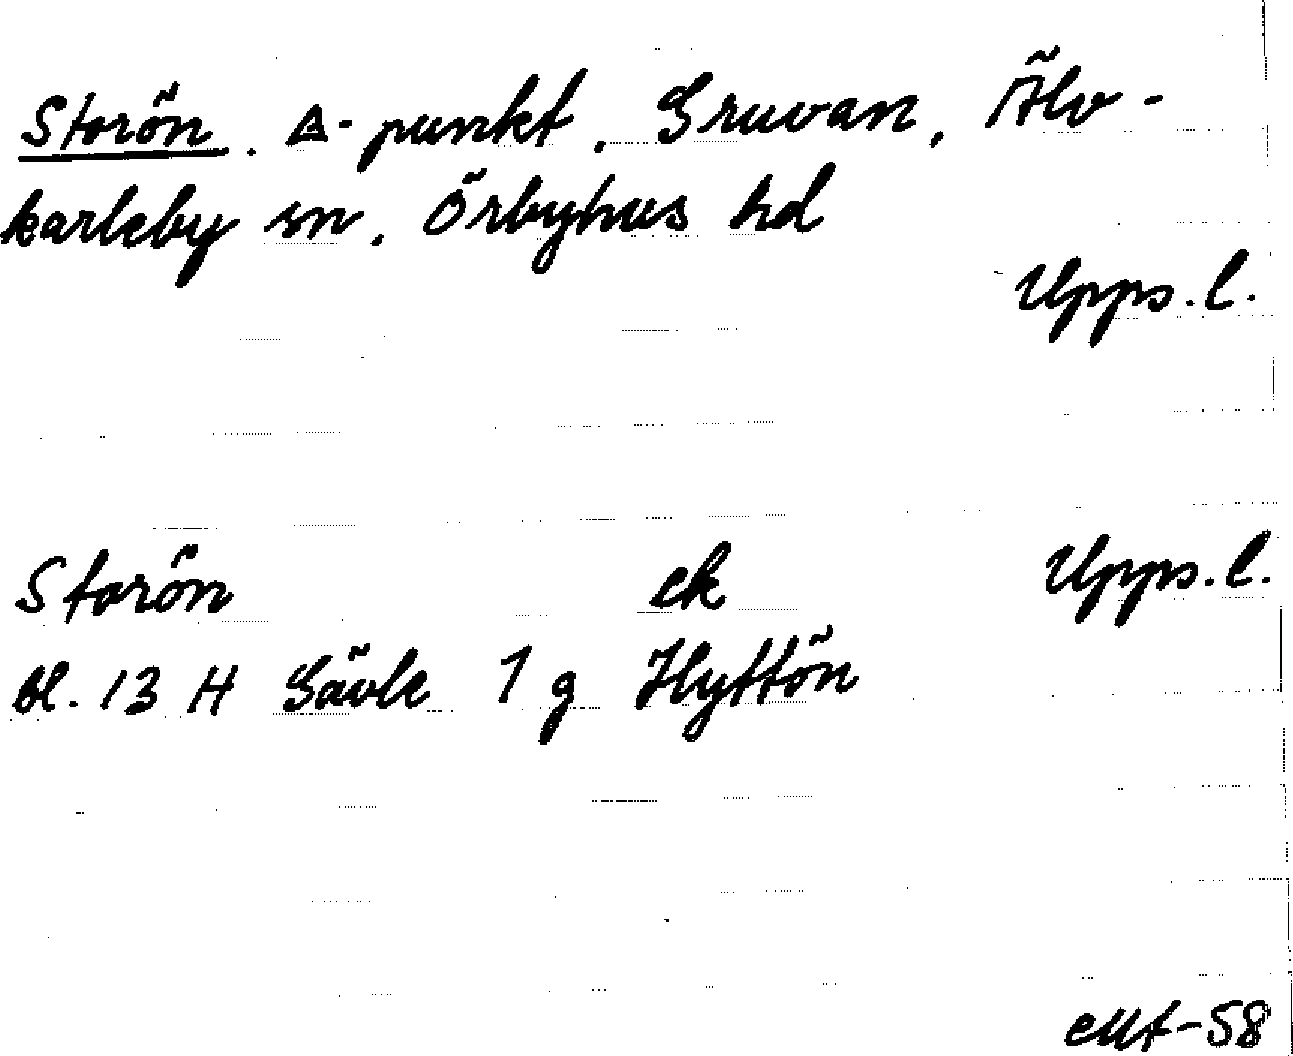 Storön. Δ-punkt, Gruvan, Älv-
karleby sn. Örbyhus hd
Upps. l.
Storön ek Upps. l.
bl. 13 H Gävle 1 g Hyttön
-58